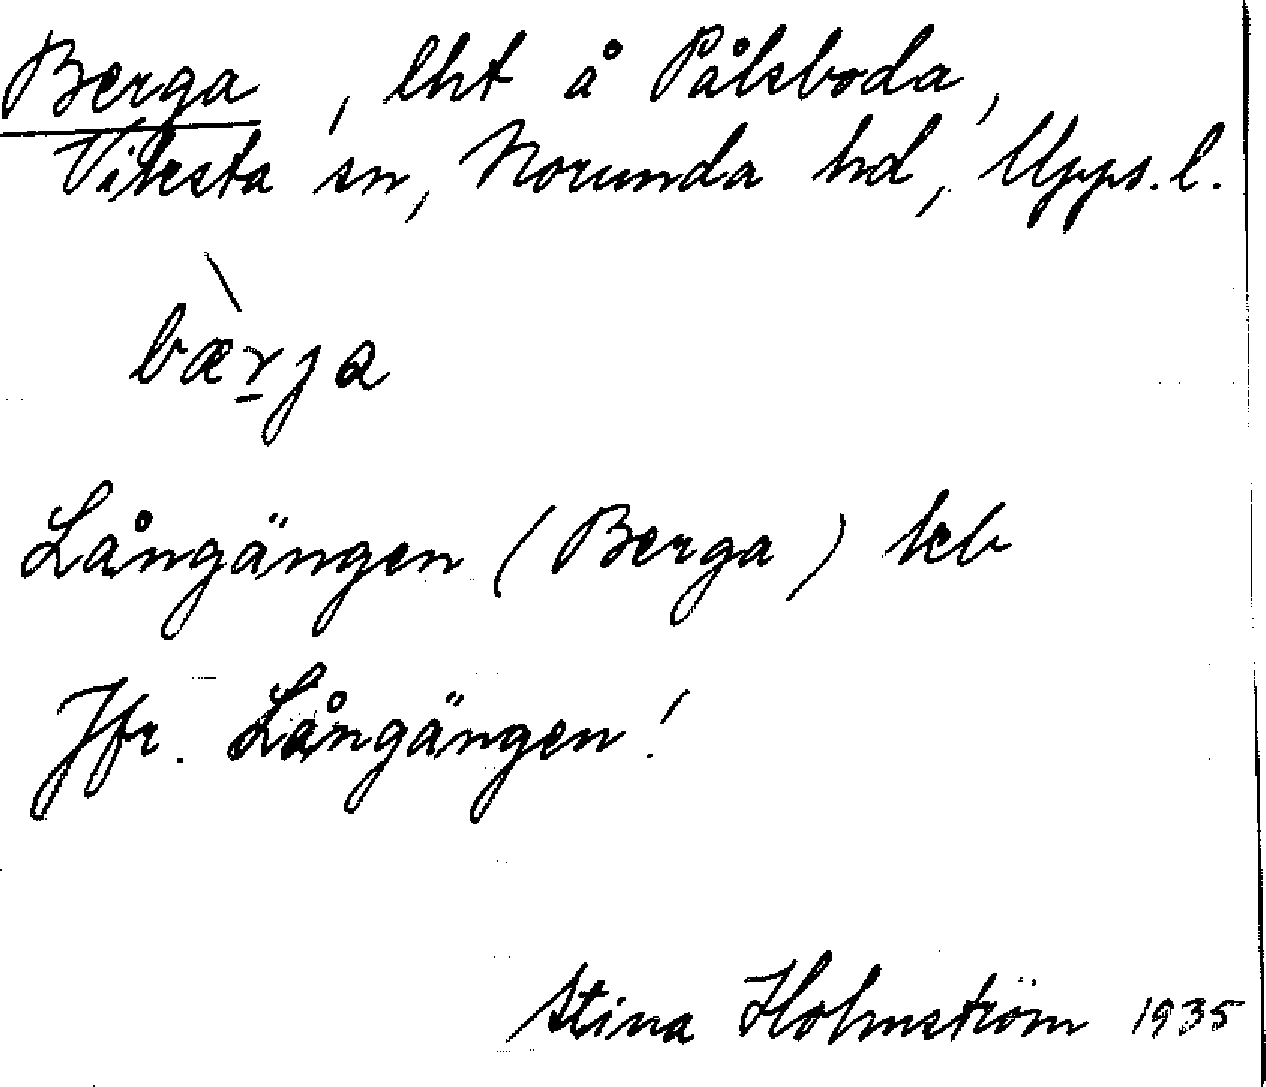 Berga, lht å Pålsboda,
Viksta sn, Norunda hd, Upps. l.
bæ̀r̠ja
Långängen (Berga) kb
Jfr. Långängen!
Stina Holmström 1935